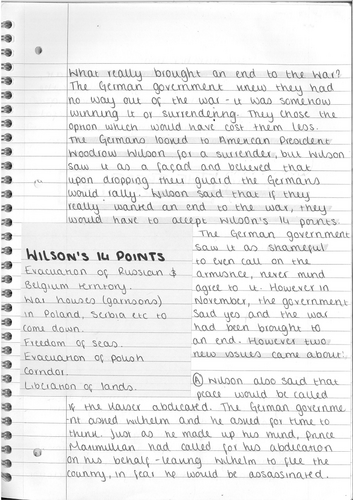 What really brought an end to the War?
The German government knew they had
no way out of the war - it was somehow
winning it or surrendering. They chose the
opnon which would have cost them less.
The Germans looked to American President
Woodrow Wilson for a surrender, but Wilson
saw it as a façad and believed that
upon dropping their guard the Germans
would rally. Wilson said that if they
really wanted an end to the war, they
would have to accept Wilson's 14 points.
WILSON'S 14 POINTS
Evacuation of Russian &
Belgium territory.
War houses (garrisons)
in Poland, Serbia etc to
come down.
Freedom of seas.
Evacuation of polish
Corridor.
Liberation of lands.
The German government
saw it as shameful
to even call on the
armisnce, never mind
agree to it. However in
November, the government
said yes and the war
had been brought to
an end. However two
new issues came about:
A Wilson also said that
peace would be called
if the Kaiser abdicated. The German governme-
nt asked Wilhelm and he asked for time to
think. Just as he made up his mind, Prince
Maximilian had called for his abdication
on his behalf - leaving Wilhelm to flee the
country, in fear he would be assassinated.